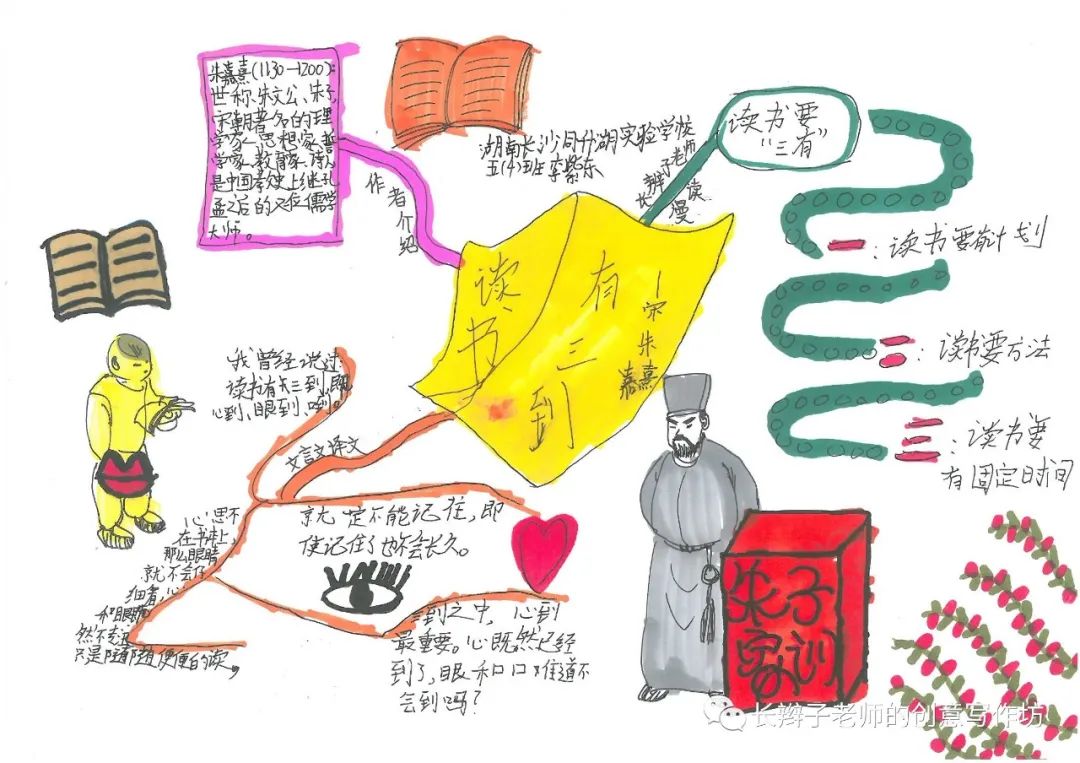 朱嘉熹(1130—1200):
世称朱文公、朱子,
宋朝著名的理
学家、思想家、哲
学家、教育家、诗人,
是中国教史上继孔
孟之后的又一位儒学
大师。
作者介绍
湖南长沙同升湖实验学校
五(4)班李紫东
长辫子老师
漫谈
读书要
“三有”
一:读书要有计划
二:读书要方法
三:读书要
有固定时间
读书
有三到
—宋朱嘉熹
文言文译文
我曾经说过:
读书有三到,既
心到、眼到、口到。
心思不
在书本上,
那么眼睛
就不会仔
细看,心
和眼睛
然不专
只是随随便便的读,
就一定不能记住,即
使记住了也不会长久。
三到之中,心到
最重要。心既然已经
到了,眼和口难道不
会到吗?
朱子
家训
长辫子老师的创意写作坊